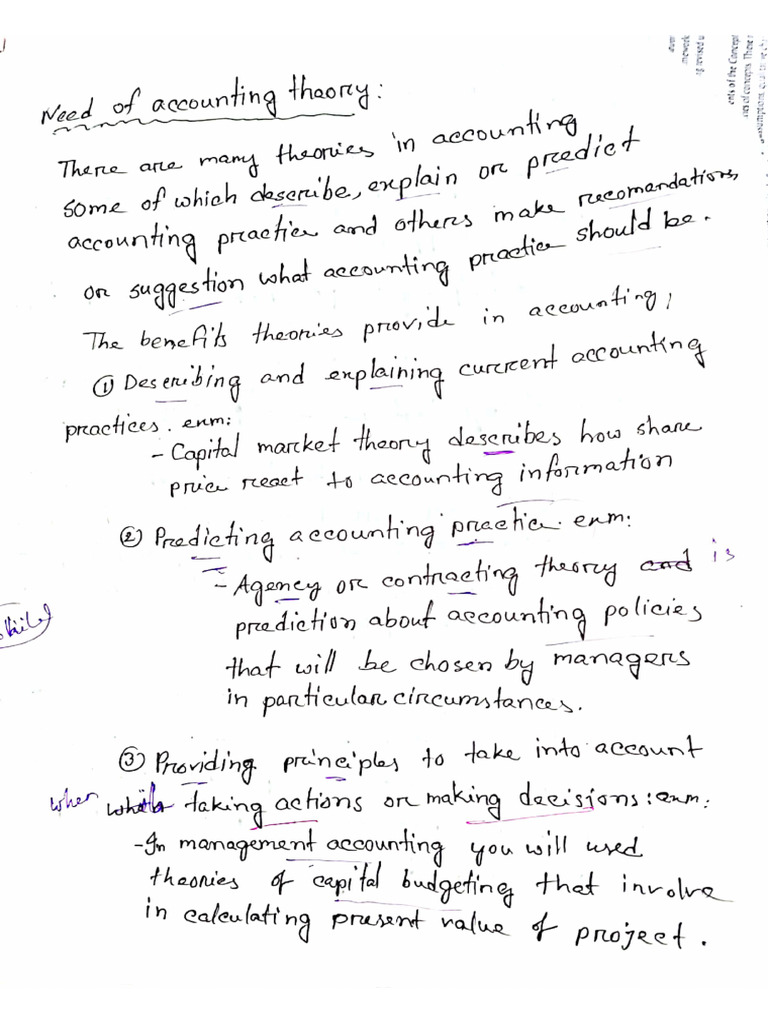 Need of accounting theory:
There are many theories in accounting
some of which describe, explain or predict
accounting practice and others make recomandations,
or suggestion what accounting practice should be.
The benefits theories provide in accounting,
① Describing and explaining current accounting
practices. exm:
- Capital market theory describes how share
price react to accounting information
② Predicting accounting practice. exm:
- Agency or contracting theory and is
prediction about accounting policies
that will be chosen by managers
in particular circumstances.
③ Providing principles to take into account
when taking actions or making decisions: exm:
- In management accounting you will used
theories of capital budgeting that involve
in calculating present value of project.
ents of the Concept